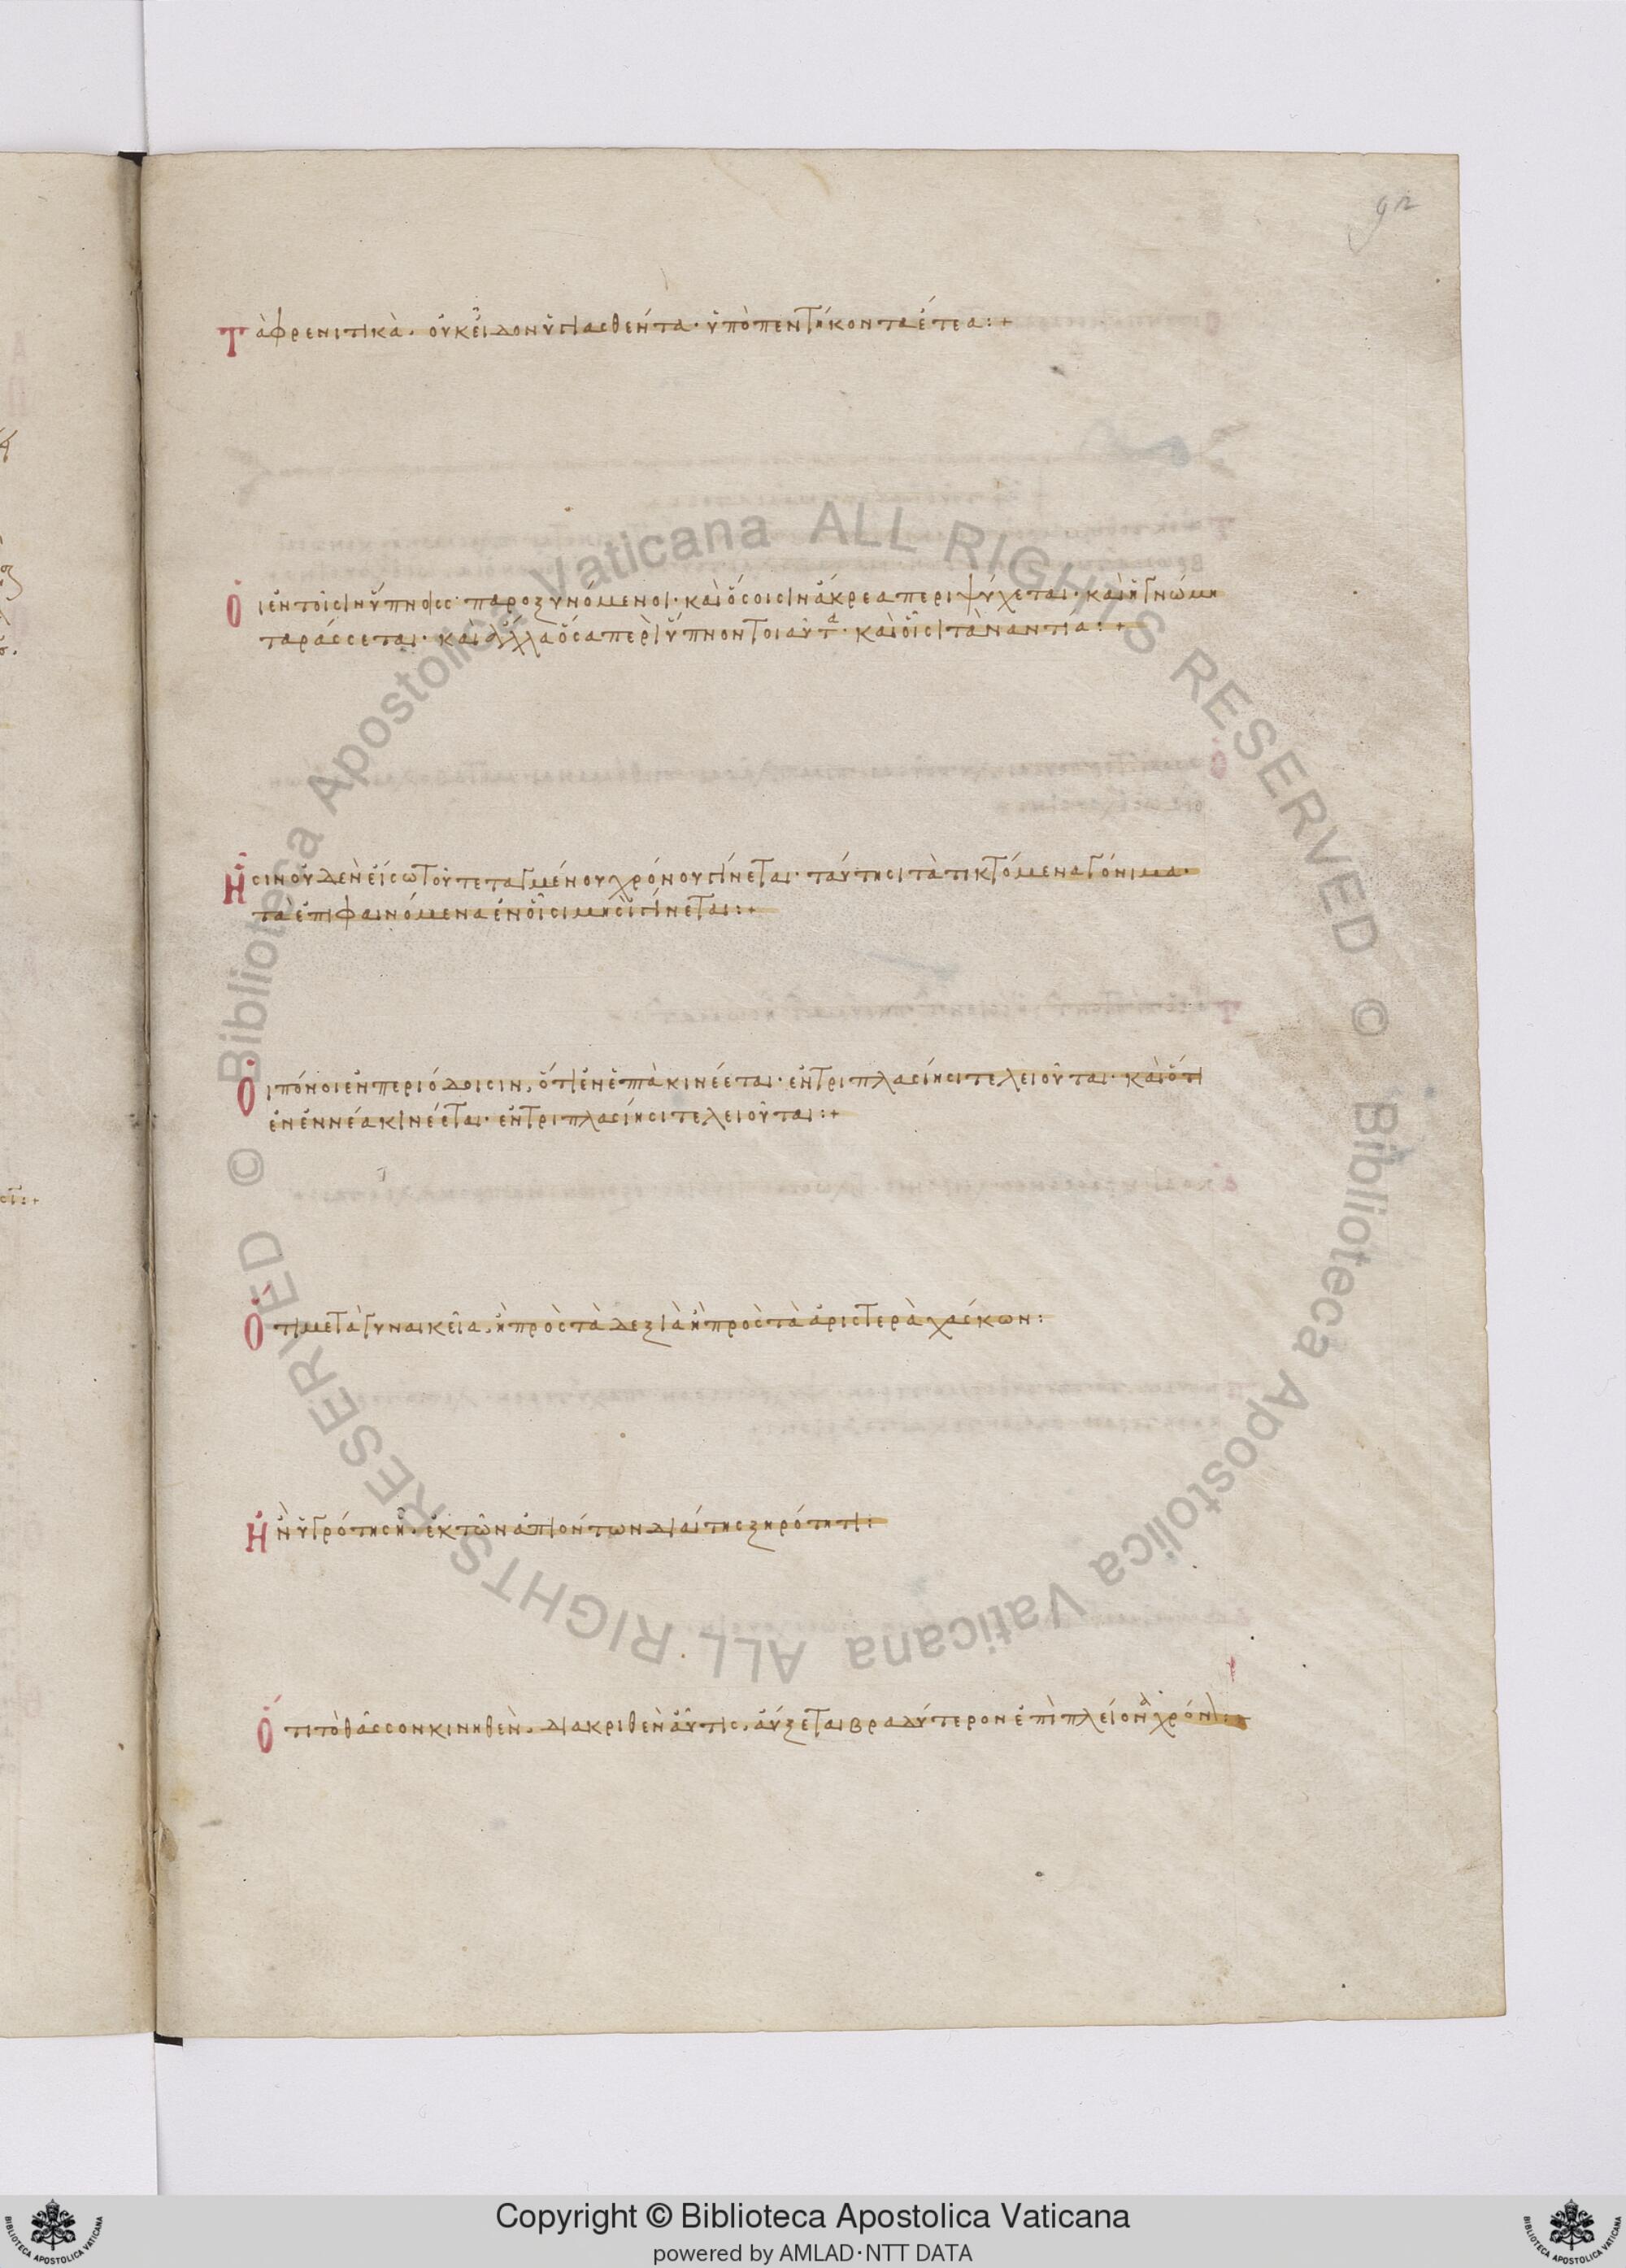 92
Τὰ φρενιτικὰ· οὐκ εἶδον ὑγιασθέντα· ὑπὸ πεντήκοντα έτεα:+
Οἱ ἐν τοῖσιν ὕπνοις παροξυνόμενοι· καὶ ὅσοισιν ἄκρεα περιψύχεται· καὶ ἡ γνώμη
ταράσσεται· καὶ ἄλλα ὅσα περὶ ὕπνον τοιαῦτα· καὶ οἷσι τἀναντία:+
Ἧισιν οὐδὲν εἴσω τοῦ τεταγμένου χρόνου γίνεται· ταύτησι τὰ τικτόμενα γόνιμα·
τὰ ἐπιφαινόμενα ἐν οἷσι μησὶ γίνεται:+
Οἱ πόνοι ἐν περιόδοισιν, ὅτι ἐν ἑπτὰ κινέεται· ἐν τριπλασίησι τελειοῦται· καὶ ὅτι
ἐν ἐννέα κινέεται· ἐν τριπλασίησι τελειοῦται:+
Ὅτι μετὰ γυναικεῖα, ἢ πρὸς τὰ δεξιὰ ἢ πρὸς τὰ ἀριστερὰ χάσκων:
Ἢν ὑγρότης ἦ· ἐκ τῶν ἀπιόντων διαίτης ξηρότητι:
Ὅτι τὸ θᾶσσον κινηθὲν, διακριθὲν αὖτις, αὔξεται βραδύτερον ἐπὶ πλεῖον δὲ χρόνον:+
© Biblioteca Apostolica Vaticana ALL RIGHTS RESERVED © Biblioteca Apostolica Vaticana ALL RIGHTS RESERVED
Copyright © Biblioteca Apostolica Vaticana
powered by AMLAD·NTT DATA
BIBLIOTECA APOSTOLICA VATICANA
BIBLIOTECA APOSTOLICA VATICANA